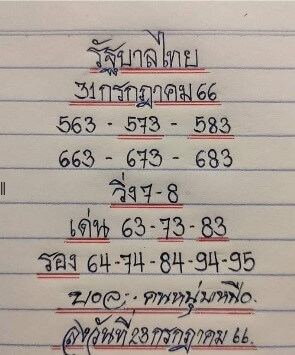 รัฐบาลไทย
31 กรกฎาคม 66
563 - 573 - 583
663 - 673 - 683
วิ่ง 7-8
เด่น 63-73-83
รอง 64-74-84-94-95
บอล: คนหนุ่มเหนือ.
ลงวันที่ 28 กรกฎาคม 66.